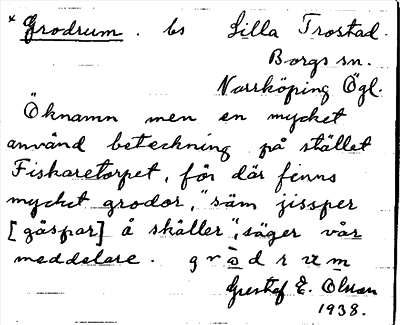 * Grodrum. bs Lilla Trostad.
Borgs sn.
Norrköping Ögl.
Öknamn men en mycket
använd beteckning på stället
Fiskaretorpet, för där finns
mycket grodor, "säm jissper
[gäspar] å skäller", säger vår
meddelare. g r ä d r u m
Gustaf E. Olsson
1938.